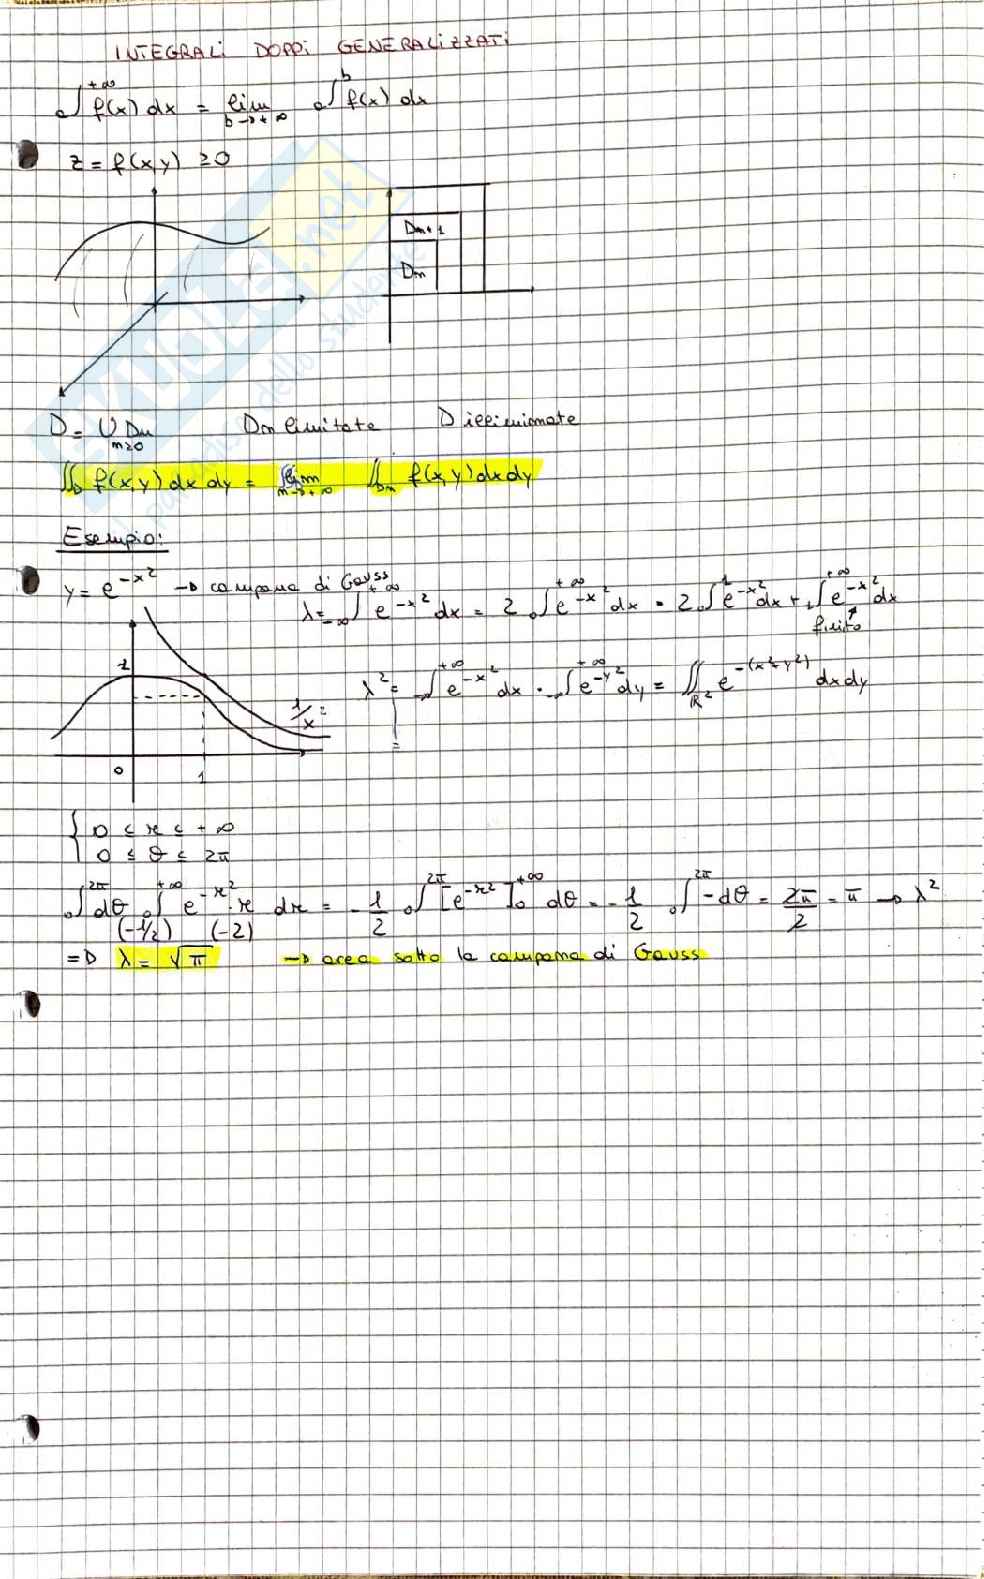 INTEGRALI DOPPI GENERALIZZATI
₀∫^+∞ f(x) dx = lim b→+∞ ₀∫^b f(x) dx
z = f(x,y) ≥ 0
Dn+1
Dn
D = ∪ Dn n≥0 Dn limitate D illimitate
∬_D f(x,y) dx dy = lim n→+∞ ∬_Dn f(x,y) dx dy
Esempio:
y = e^-x² → campana di Gauss
λ = -∞∫^+∞ e^-x² dx = 2 ₀∫^+∞ e^-x² dx = 2 ₀∫^1 e^-x² dx + ₁∫^+∞ e^-x² dx
finito
λ² = -∞∫^+∞ e^-x² dx · -∞∫^+∞ e^-y² dy = ∬_R² e^-(x²+y²) dx dy
=
1
1/x²
0
1
{ 0 ≤ r ≤ +∞
0 ≤ θ ≤ 2π
₀∫^2π dθ ₀∫^+∞ e^-r² · r dr = -1/2 ₀∫^2π [e^-r²]₀^+∞ dθ = -1/2 ₀∫^2π -dθ = 2π/2 = π → λ²
(-1/2) (-2)
=D λ = √π → area sotto la campana di Gauss
SKUOLA.net
il paradiso dello studente